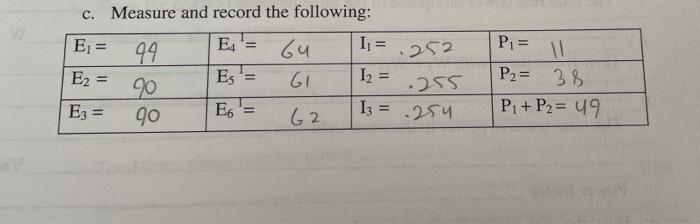 c. Measure and record the following:
E₁ = 99 E₄¹= 64 I₁ = .252 P₁ = 11
E₂ = 90 E₅¹= 61 I₂ = .255 P₂ = 38
E₃ = 90 E₆¹= 62 I₃ = .254 P₁ + P₂ = 49